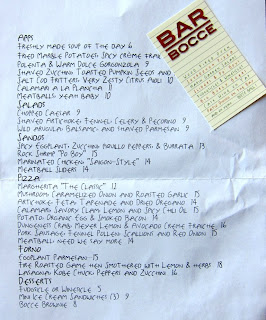 BAR
BOCCE
APPS
FRESHLY MADE SOUP OF THE DAY 6
FRIED MARBLE POTATOES: SPICY CRÈME FRAI
POLENTA & WARM DOLCE GORGONZOLA 9
SHAVED ZUCCHINI: TOASTED PUMPKIN SEEDS AND
SALT COD FRITTERS: VERY ZESTY CITRUS AIOLI 10
CALAMARI A LA PLANCHA 11
MEATBALLS: YEAH BABY 10
SALADS
CHOPPED CAESAR 9
SHAVED ARTICHOKE: FENNEL: CELERY & PECORINO 9
WILD ARUGULA: BALSAMIC: AND SHAVED PARMESAN 9
SANDOS
SPICY EGGPLANT: ZUCCHINI: PEPPERS & BURRATA 13
ROCK SHRIMP "PO BOY" 15
MARINATED CHICKEN "SAIGON-STYLE" 14
MEATBALL SLIDERS 14
PIZZA
MARGHERITA "THE CLASSIC" 12
MUSHROOM: CARAMELIZED ONION AND ROASTED GARLIC 15
ARTICHOKE: FETA: TAPENADE AND DRIED OREGANO 14
CALAMARI: SAVORY CLAM: LEMON AND SPICY CHILI OIL 15
POTATO: ORGANIC EGG & SMOKED BACON 14
DUNGENESS CRAB: MEYER LEMON & AVOCADO CRÈME FRAICHE 16
PORK SAUSAGE: FENNEL POLLEN: SCALLIONS AND RED ONION 15
MEATBALL: NEED WE SAY MORE 14
FORNO
EGGPLANT PARMESAN 15
THE ROASTED GAME HEN SMOTHERED WITH LEMON & HERBS 18
LASAGNA: KOBE CHUCK: PEPPERS AND ZUCCHINI 16
DESSERTS
FUDGSICLE OR WINESICLE 5
MINI ICE CREAM SANDWICHES (3) 9
BOCCE BROWNIE 8